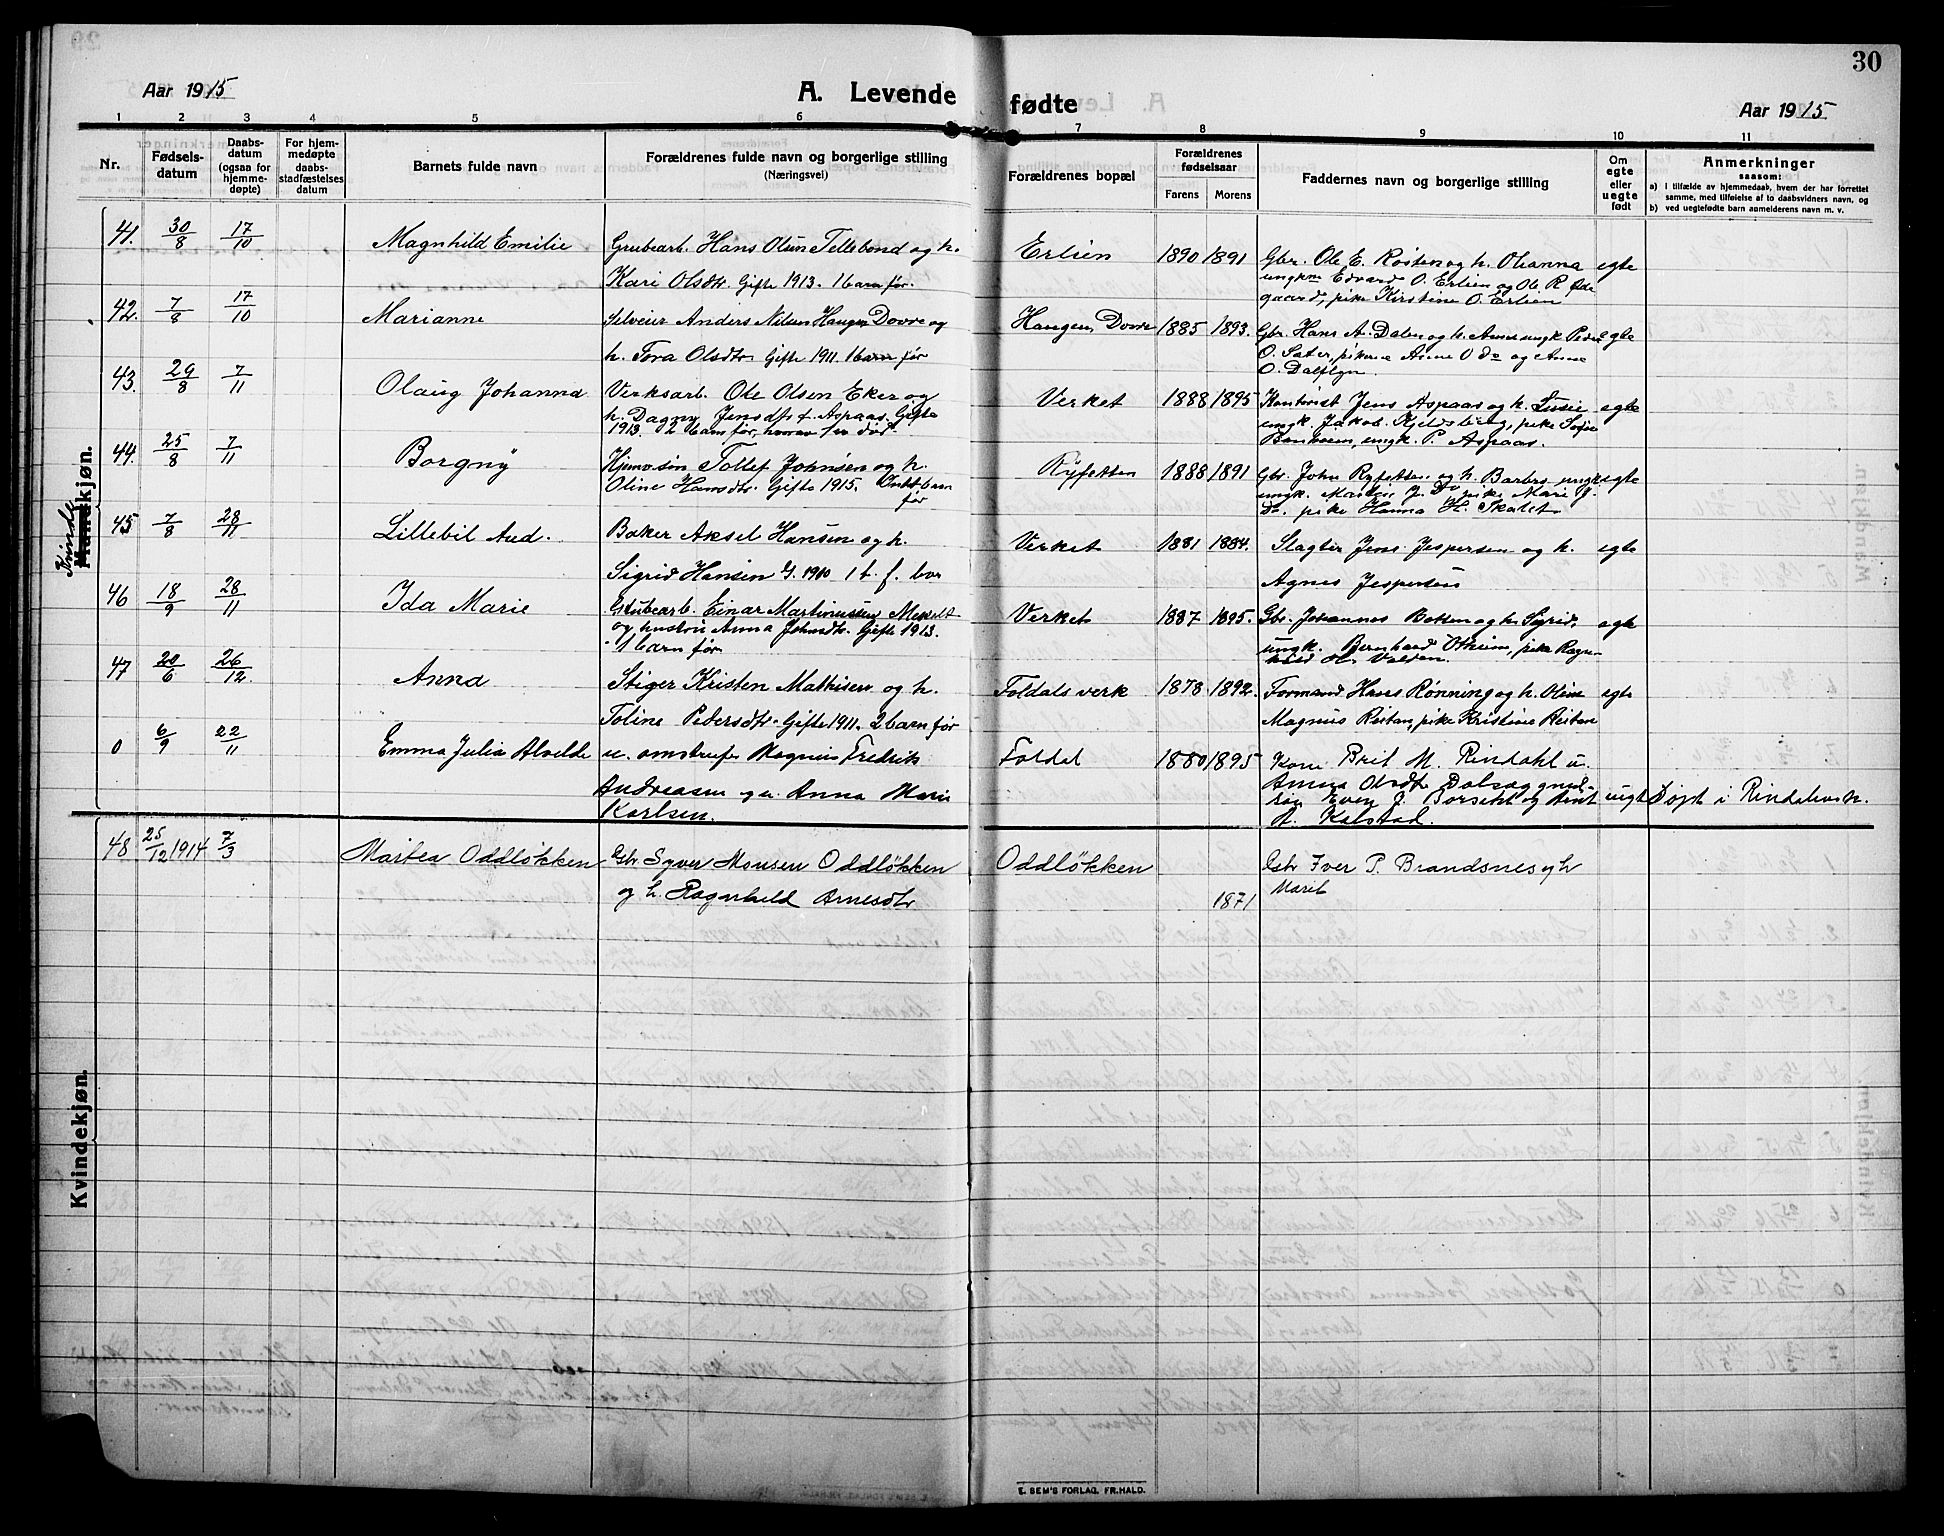 30
Aar 1915
A. Levende fødte
Aar 1915
1 2 3 4 5 6 7 8 9 10 11
Nr.
Fødsels-
datum
Daabs-
datum
(ogsaa for
hjemme-
døpte)
For hjem-
medøpte
daabs-
stadfæstelses
datum
Barnets fulde navn
Forældrenes fulde navn og borgerlige stilling
(Næringsvei)
Forældrenes bopæl
Forældrenes
fødselsaar
Farens Morens
Faddernes navn og borgerlige stilling
Om
egte
eller
uegte
født
Anmerkninger
saasom:
a) i tilfælde av hjemmedaab, hvem der har forrettet
samme, med tilføielse af to daabsvidners navn, og
b) ved uegtefødte barn anmelderens navn m. v.
Kvinde
Mandkjøn.
41. 30/8 17/10 Magnhild Emilie Grubearb. Hans Olsen Tellebond og h. Erlien 1890 1891 Gbr. Ole E. Rösten og h. Ohanna egte
Kari Olsdtr. Gifte 1913. 1 barn før. ungkm Edvard O. Erlien og Ole R. Øde
gaard, pike Kirstine O. Erlien
42. 7/8 17/10 Marianne Selveier Anders Nilsen Haugen Dovre og Haugen, Dovre 1885 1893. Gbr. Hans A. Dalen og h. Anne ungk Peder egte
h. Tora Olsdtr. Gifte 1911. 1 barn før O. Sater, pikene Anne O do og Anne
O. Dalflyen.
43. 29/8 7/11 Olaug Johanna Verksarb. Ole Olsen Eker og Verket 1888 1895 Kontorist Jens Aspaas og h. egte
h. Dagny Jensdtr f. Aspaas. Gifte ungk. Jakob Kjeldsberg, pike Sofie
1913. 2 barn før, hvorav 1 er død. ungk. P. Aspaas.
44. 25/8 7/11 Borgny Tollef Johnsen og h. Ryfetten 1888 1891 Gbr. John Ryfetten og h. Barbro, ungk egte
Oline Hansdtr. Gifte 1915. Intet barn ungk. Morten J. Do pike Mari J.
før Do. pike Hanna H.
45 7/8 28/11 Lillebil Aud. Baker Aksel Hansen og h. Verket 1881 1884. Slagter Jens Jespersen og h. egte
Sigrid Hansen g. 1910 1 b. f. bor Agnes Jespersen
46 18/9 28/11 Ida Marie Grubearb. Einar Martinussen Verket 1887 1895. Gbr. Johannes Botten og h. Sigrid, egte
og hustru Anna Johnsdtr. Gifte 1913. ungk. Bernhard pike Ragn-
1 barn før hild H. Volden.
47 20/6 26/12 Anna Stiger Kristen Mathisen og h. Foldals verk 1878 1892. Formand Hans Rønning og h. Oline egte
Toline Pedersdtr. Gifte 1911. 2 barn før Magnus Reitan, pike Kristine Reitan
0 6/9 22/11 Emma Julia Alvilde u. omstreifer Magnus Fredrik Foldal 1880 1895 Kone Brit M. Rindahl u.
Andreasen og u. Anna Marie Anna Olsdtr uegt Døpt i Rindalens k.
Karlsen. Even J. og
Kalstad.
Kvindekjøn.
48 25/12 1914 7/3 Martea Oddløkken Gbr Syver Monsen Oddløkken Oddløkken Gbr Iver P. Brandsnes og h
og h. Ragnhild Arnesdtr 1871 Marit
E. SEM'S FORLAG, FR.HALD.